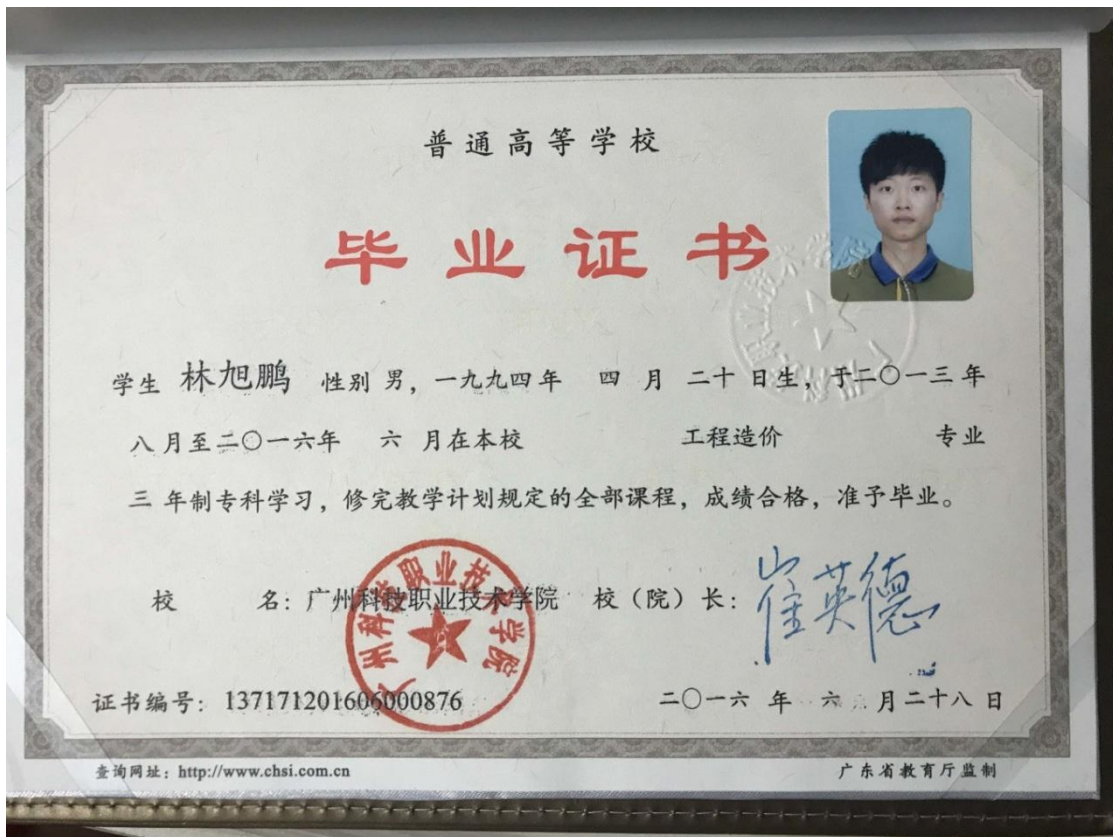 普通高等学校
毕业证书
学生 林旭鹏 性别 男，一九九四年 四 月 二十 日生，于二〇一三 年
八 月至二〇一六年 六 月在本校 工程造价 专业
三 年制专科学习，修完教学计划规定的全部课程，成绩合格，准予毕业。
校 名：广州科技职业技术学院 校（院）长：崔英德
广州科技职业技术学院
证书编号：137171201606000876 二〇一六 年 六 月二十八 日
查询网址：http://www.chsi.com.cn 广东省教育厅监制